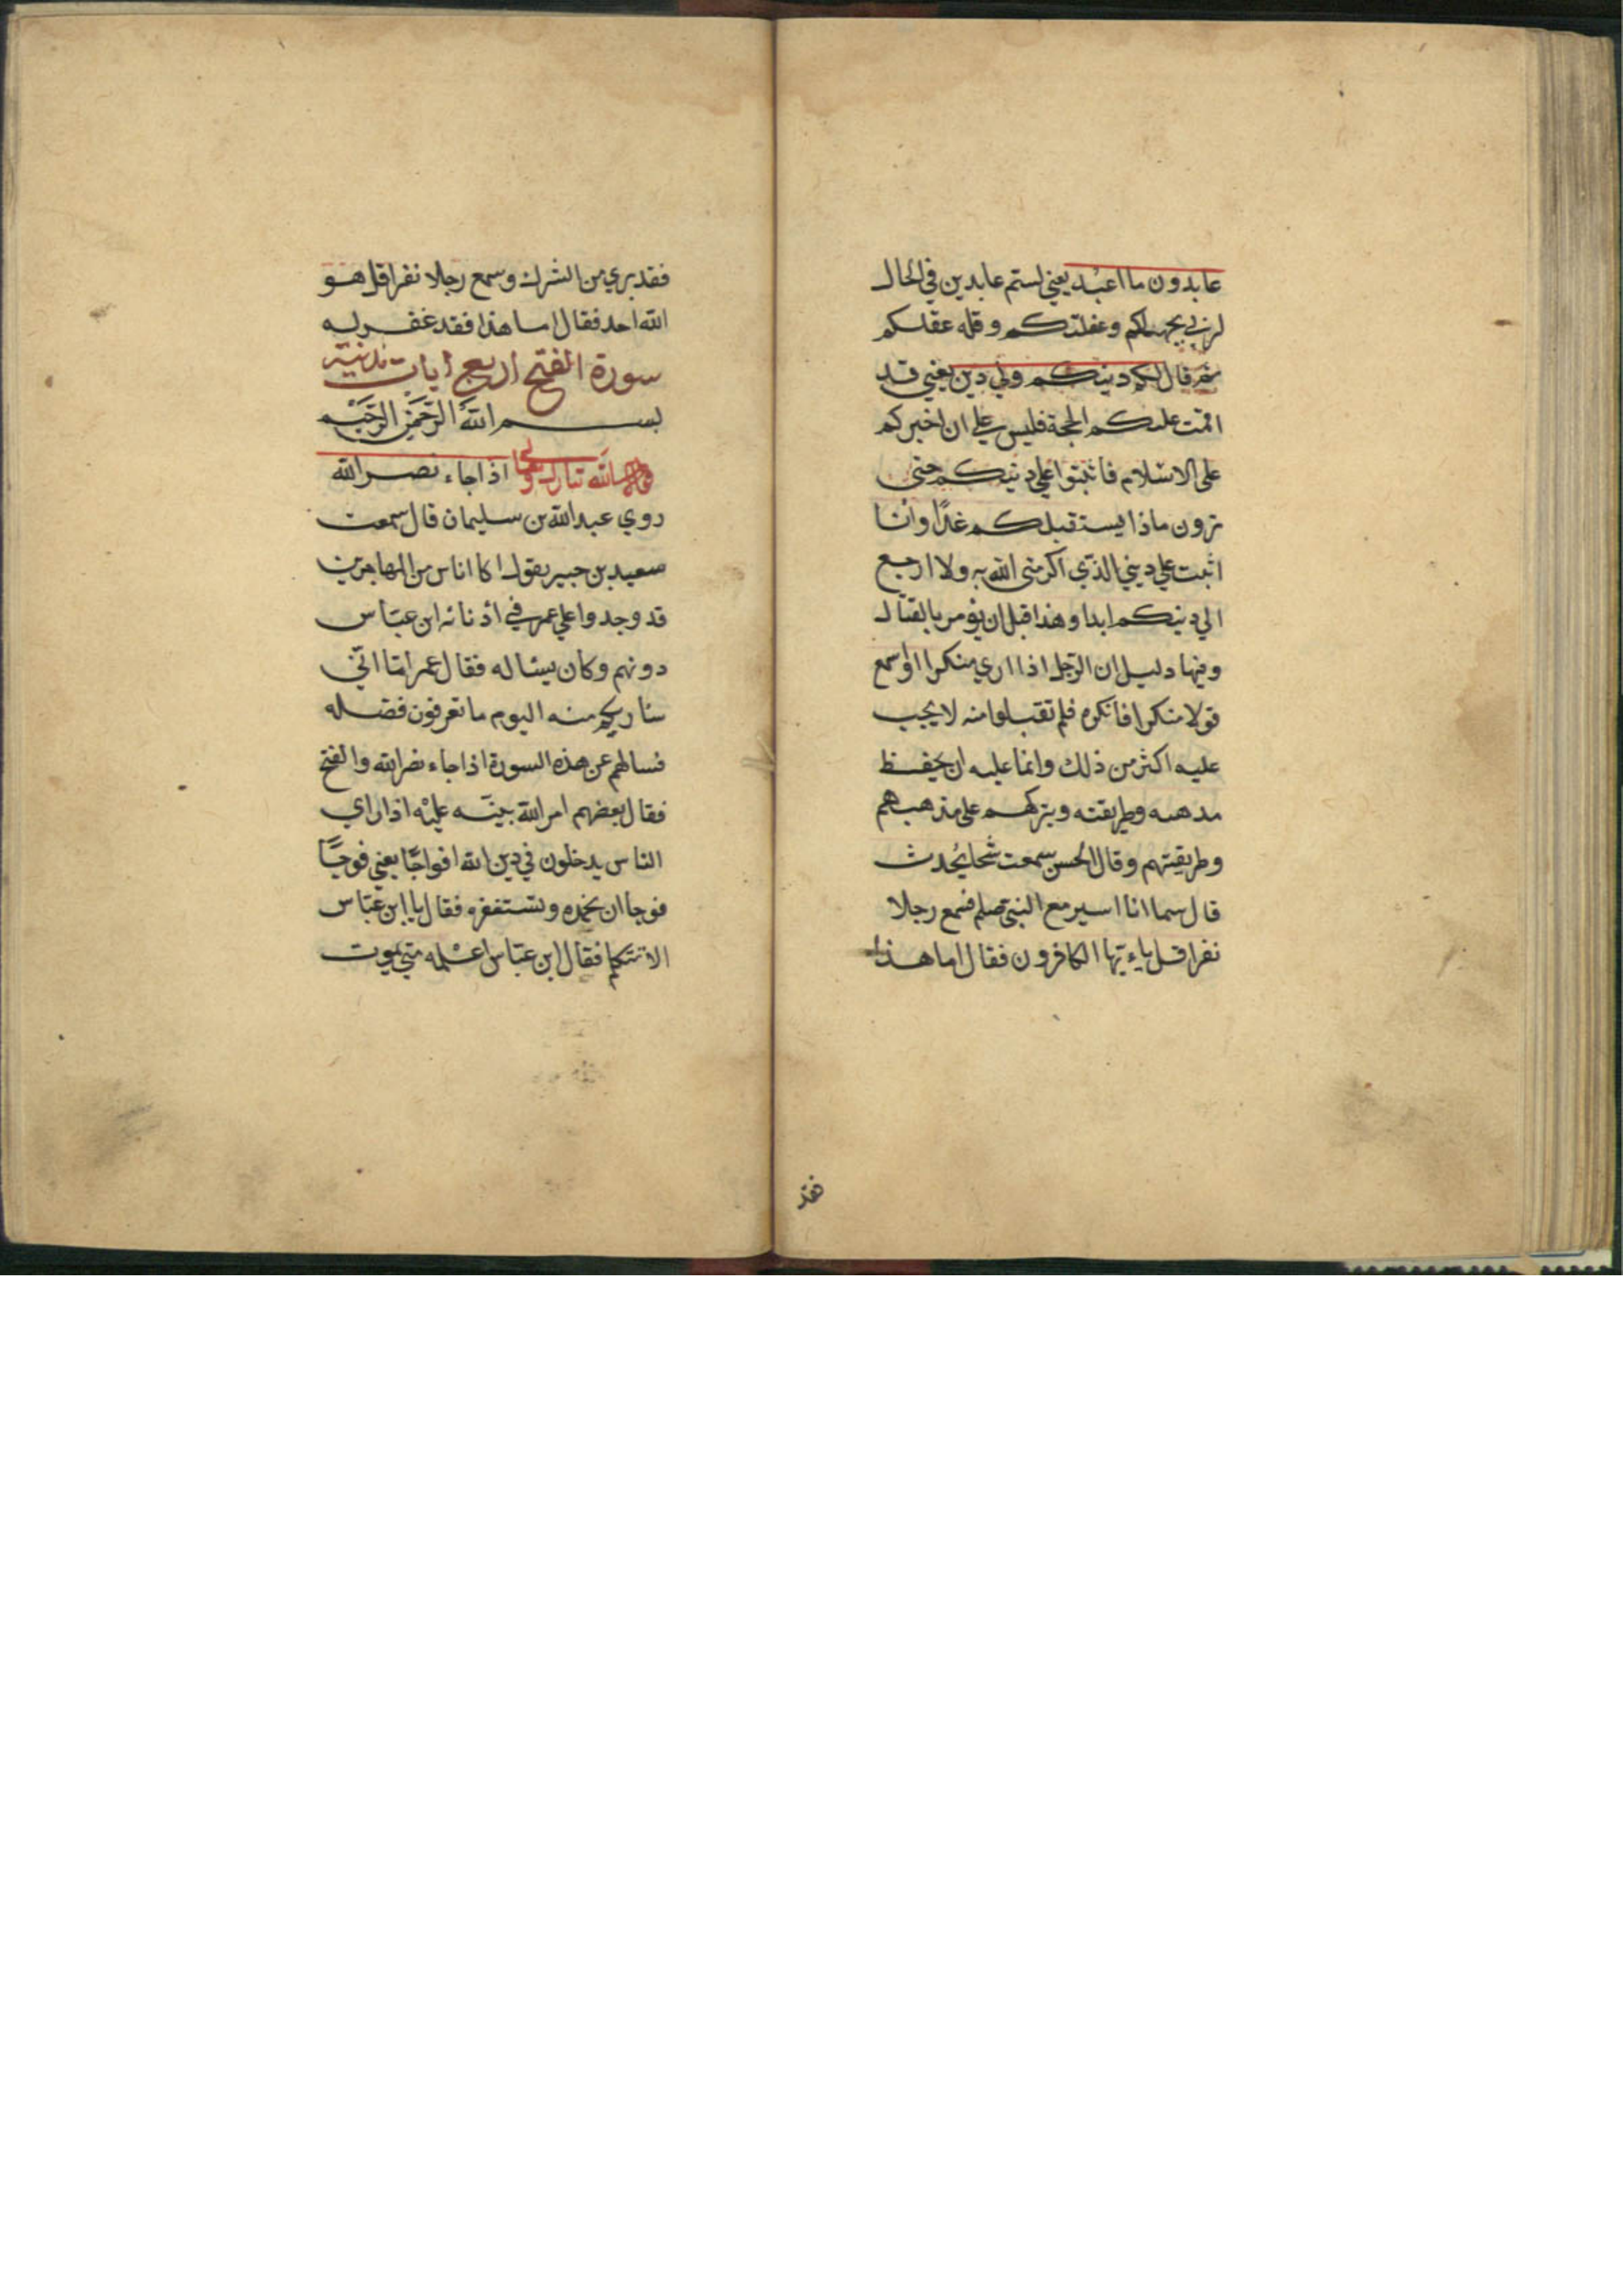 عابدون ما اعبد يعني لستم عابدين في الحال
لربي بجهلكم وغفلتكم وقلة عقلكم
ثم قال لكم دينكم ولي دين يعني قد
اقمت عليكم الحجة فليس علي ان اخبركم
على الاسلام فاثبتوا على دينكم حتى
ترون ماذا يستقبلكم غدًا وانا
اثبت علي ديني الذي اكرمني الله به ولا ارجع
الي دينكم ابدا وهذا قبل ان يؤمر بالقتال
وفيها دليل ان الرجل اذا اري منكرا او سمع
قولا منكرا فانكره فلم تقبلوا منه لا يجب
عليه اكثر من ذلك وانما عليه ان يحفظ
مذهبه وطريقته ويتركهم على مذهبهم
وطريقتهم وقال الحسن سمعت شيخا يُحدث
قال سما انا اسير مع النبي صلم فسمع رجلا
نقرا قل ياءيّها الكافرون فقال اما هذا
فقد
فقد بري من الشرك وسمع رجلا نقرا قل هو
الله احد فقال اما هذا فقد غفر له
سورة الفتح اربع ايات مدنية
بسم الله الرحمن الرحيم
الله تبارك وتعالى اذا جاء نصر الله
روي عبد الله بن سليمان قال سمعت
سعيد بن جبير يقول كا اناس من المهاجرين
قد وجدوا علي عمر في اذنانه ابن عبّاس
دونهم وكان يسئاله فقال عمر امّا انّي
ساريكم منه اليوم ما تعرفون فضله
فسالهم عن هذه السورة اذا جاء نصر الله والفتح
فقال بعضهم امر الله نبيّه عليْه اذا راي
الناس يدخلون في دين الله افواجًا يعني فوجًا
فوجا ان يحمده ويستغفره فقال يا ابن عبّاس
الا تتكلم فقال ابن عبّاس اعْلمه متي يموت